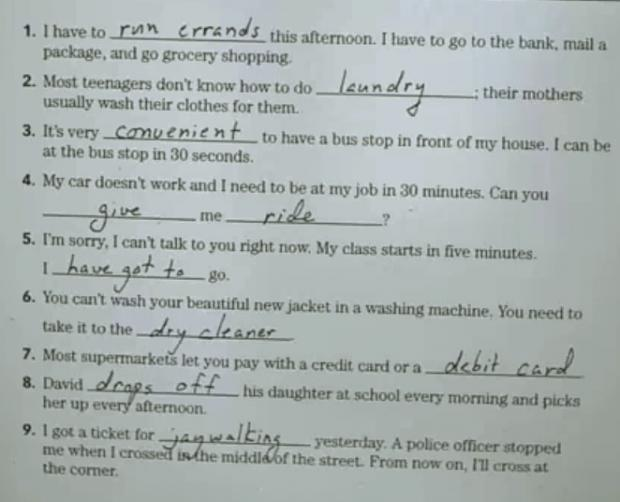 1. I have to run errands this afternoon. I have to go to the bank, mail a
package, and go grocery shopping.
2. Most teenagers don't know how to do laundry; their mothers
usually wash their clothes for them.
3. It's very convenient to have a bus stop in front of my house. I can be
at the bus stop in 30 seconds.
4. My car doesn't work and I need to be at my job in 30 minutes. Can you
give me ride?
5. I'm sorry, I can't talk to you right now. My class starts in five minutes.
I have got to go.
6. You can't wash your beautiful new jacket in a washing machine. You need to
take it to the dry cleaner
7. Most supermarkets let you pay with a credit card or a debit card
8. David drops off his daughter at school every morning and picks
her up every afternoon.
9. I got a ticket for jaywalking yesterday. A police officer stopped
me when I crossed in the middle of the street. From now on, I'll cross at
the corner.